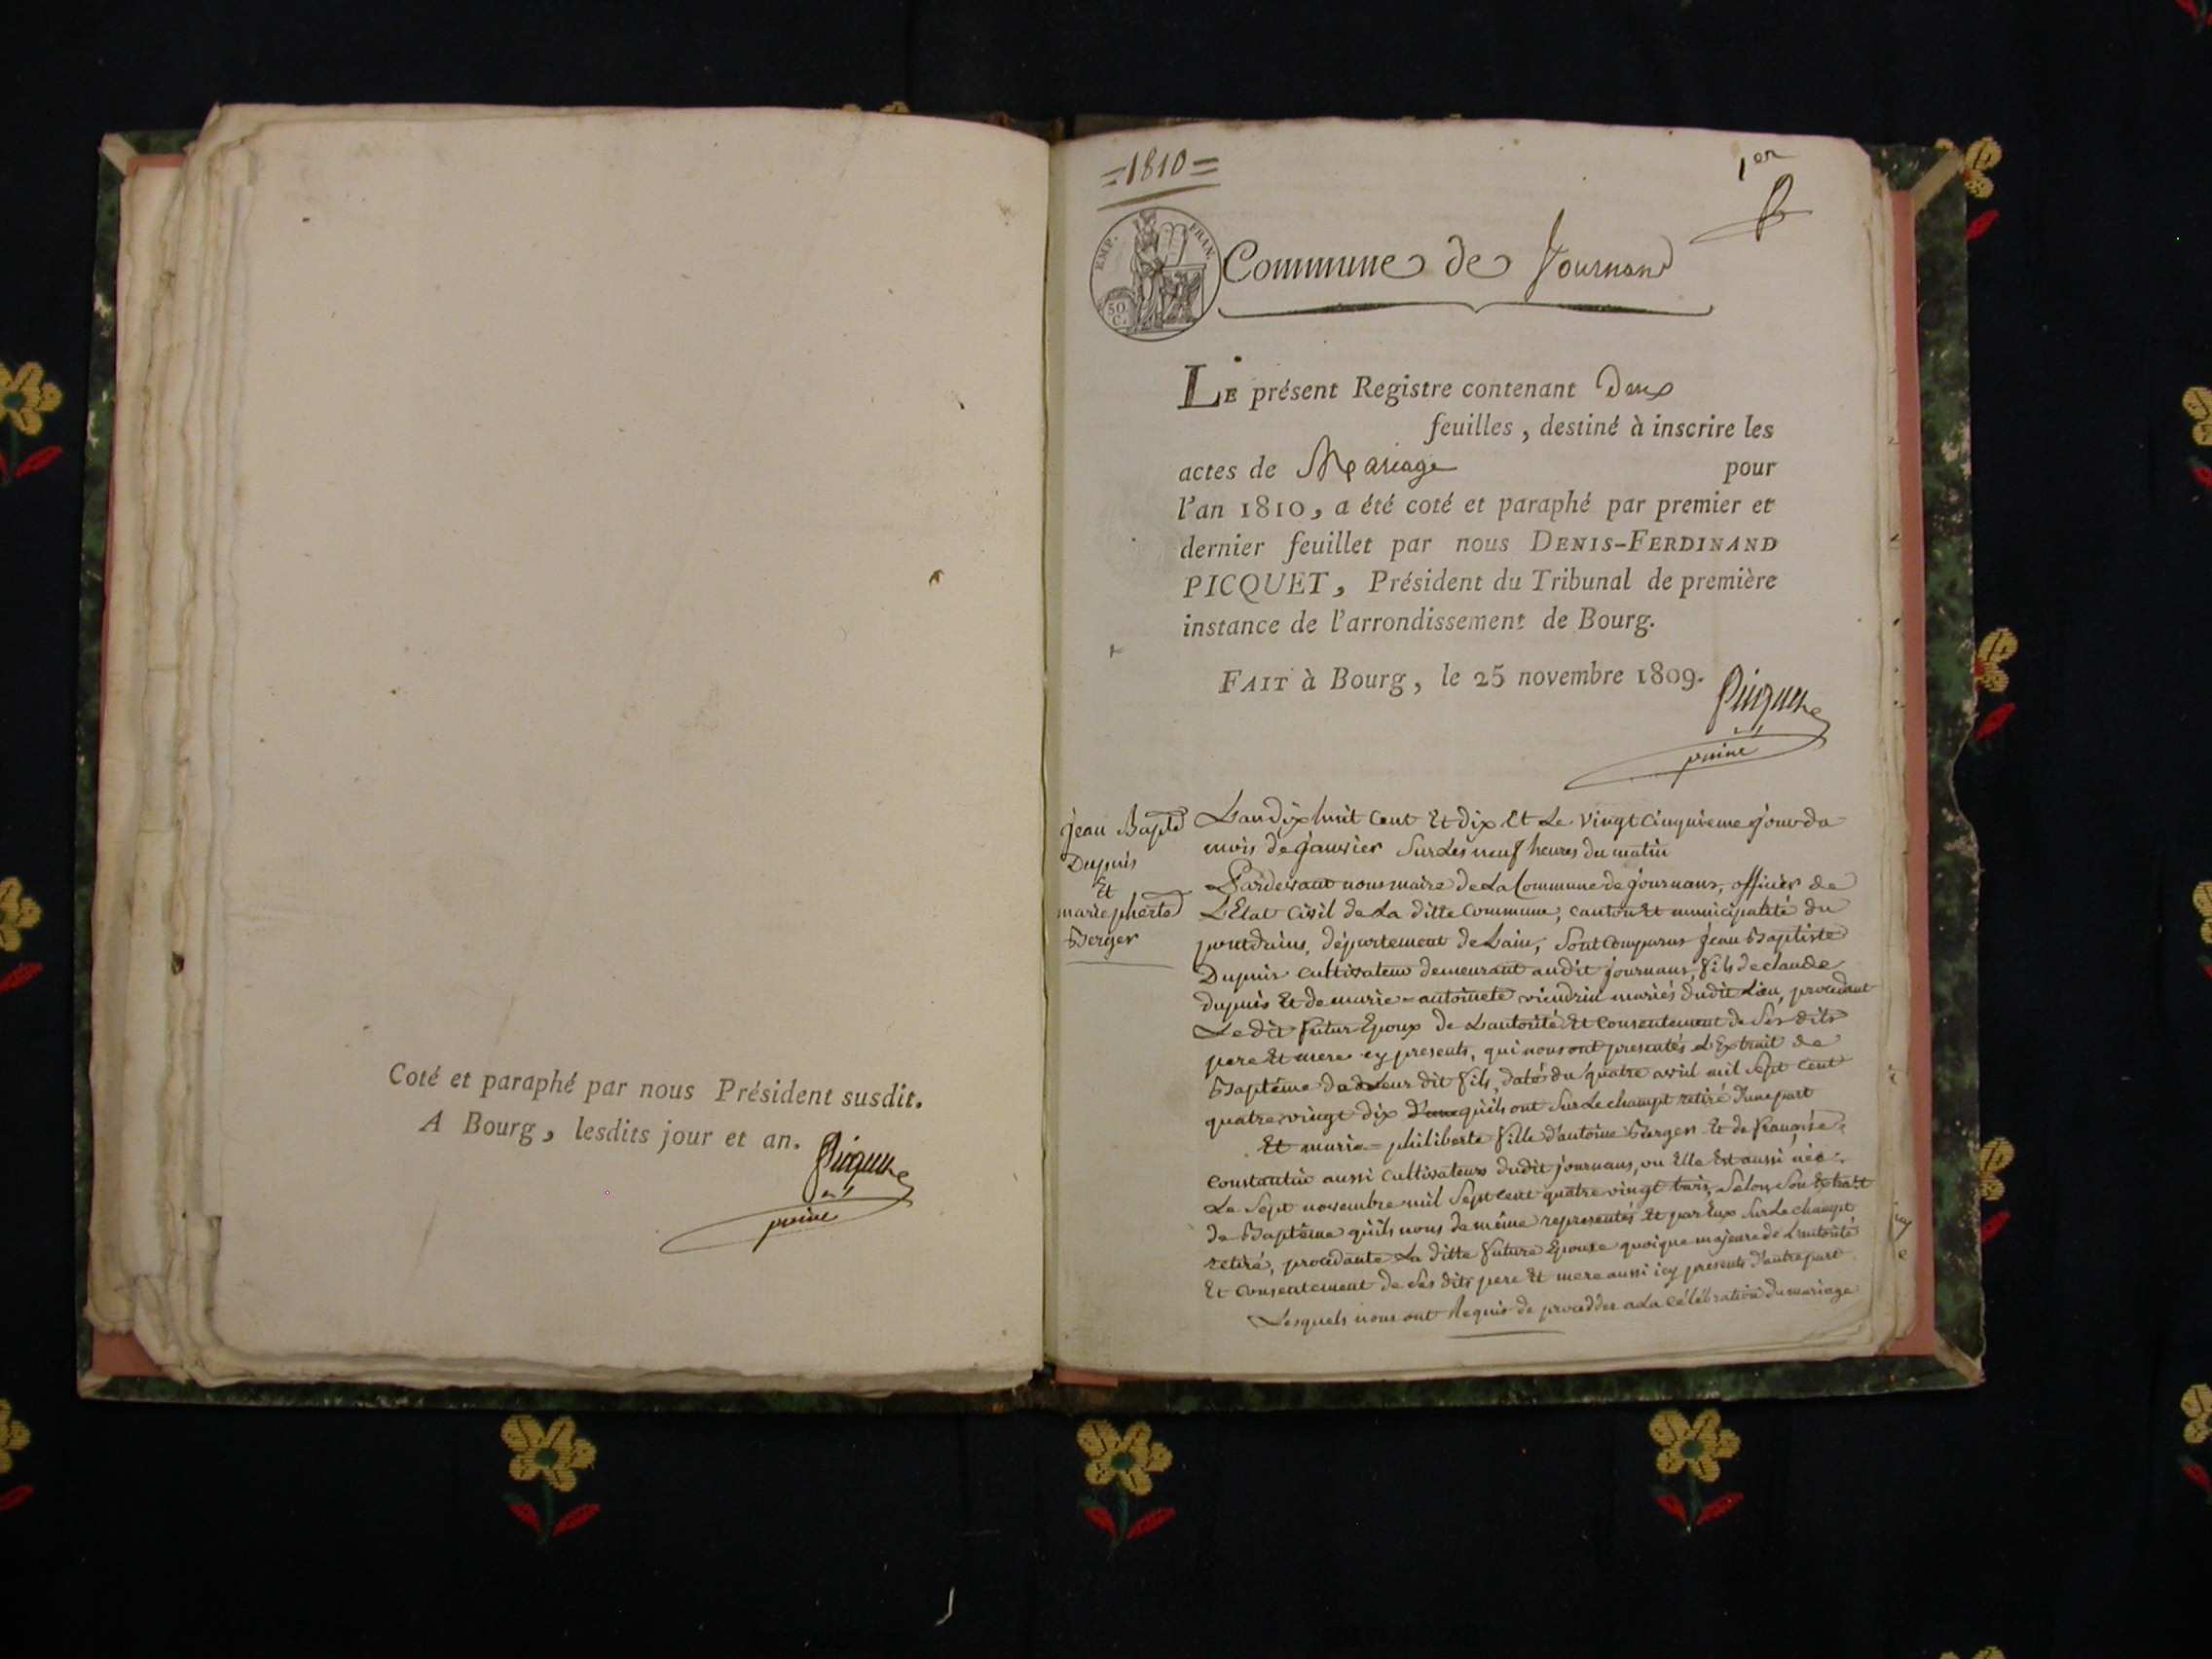 Coté et paraphé par nous Président susdit.
A Bourg, lesdits jour et an.
Picquet
=1810=
1er
EMP. FRAN.
50 C.
Commune de Journans
LE présent Registre contenant Deux
feuilles, destiné à inscrire les
actes de Mariage pour
l'an 1810, a été coté et paraphé par premier et
dernier feuillet par nous DENIS-FERDINAND
PICQUET, Président du Tribunal de première
instance de l'arrondissement de Bourg.
FAIT à Bourg, le 25 novembre 1809.
Picquet
jean Bapte
Dupuis
Et
marie pherte
Berger
L'an dix huit Cent Et dix Et Le vingt Cinquieme jour du
mois de janvier Sur Les neuf heures du matin
Pardevant nous maire de La Commune de journans, officier de
L'Etat Civil de La ditte Commune, canton Et municipalité du
pontdains, département de Lain, Sont Comparus jean Baptiste
Dupuis Cultivateur demeurant audit journans, fils de claude
dupuis Et de marie=antoinete viendrin mariés dudit Lieu, procedant
Le dit futur Epoux de L'autorité Et Consentement de Ses dits
pere Et mere cy presents, qui nous ont presentés L'Extrait de
Baptême de Leur dit fils, daté du quatre avril mil Sept Cent
quatre vingt dix qu'ils ont Sur Le champt retiré d'une part
Et marie=philiberte fille d'antoine Berger Et de françoise
Constantin aussi Cultivateurs dudit journans, ou Elle Est aussi née
Le Sept novembre mil Sept Cent quatre vingt trois, Selon Son Extrait
de Baptême qu'ils nous de même representés Et par Eux Sur Le champt
retiré, procedante La ditte future Epouse quoique majeure de L'autorité
Et Consentement de Ses dits pere Et mere aussi icy présents d'autre part
Lesquels nous ont Requis de procedder a La Célébration du mariage